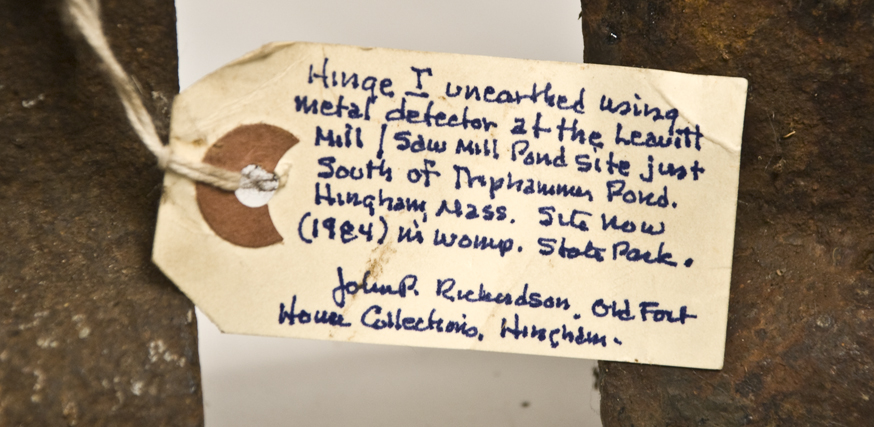 Hinge I unearthed using
metal detector at the Leavitt
Mill / Saw Mill Pond site just
South of Triphammer Pond.
Hingham, Mass. Site now
(1984) in womp. State Park.
John P. Richardson, Old Fort
House Collections, Hingham.